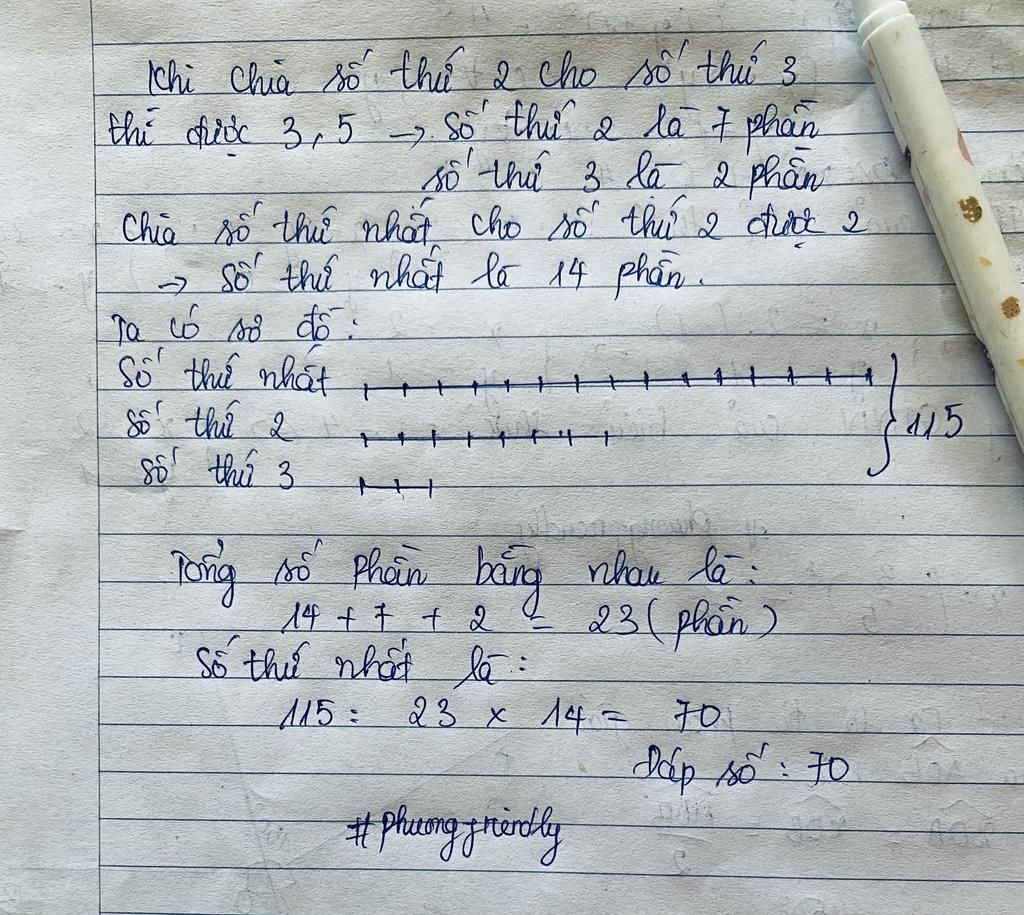 Khi chia số thứ 2 cho số thứ 3
thì được 3,5 → số thứ 2 là 7 phần
số thứ 3 là 2 phần
Chia số thứ nhất cho số thứ 2 được 2
→ số thứ nhất là 14 phần.
Ta có sơ đồ:
Số thứ nhất
số thứ 2
số thứ 3
115
Tổng số phần bằng nhau là:
14 + 7 + 2 = 23 (phần)
Số thứ nhất là:
115 : 23 x 14 = 70
Đáp số : 70
#phuongfriendly